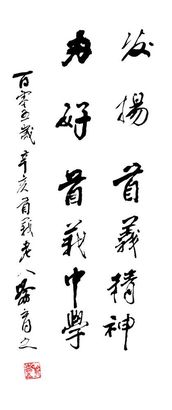 发揚首義精神
办好首義中學
百零五歲辛亥首義老人喻育之